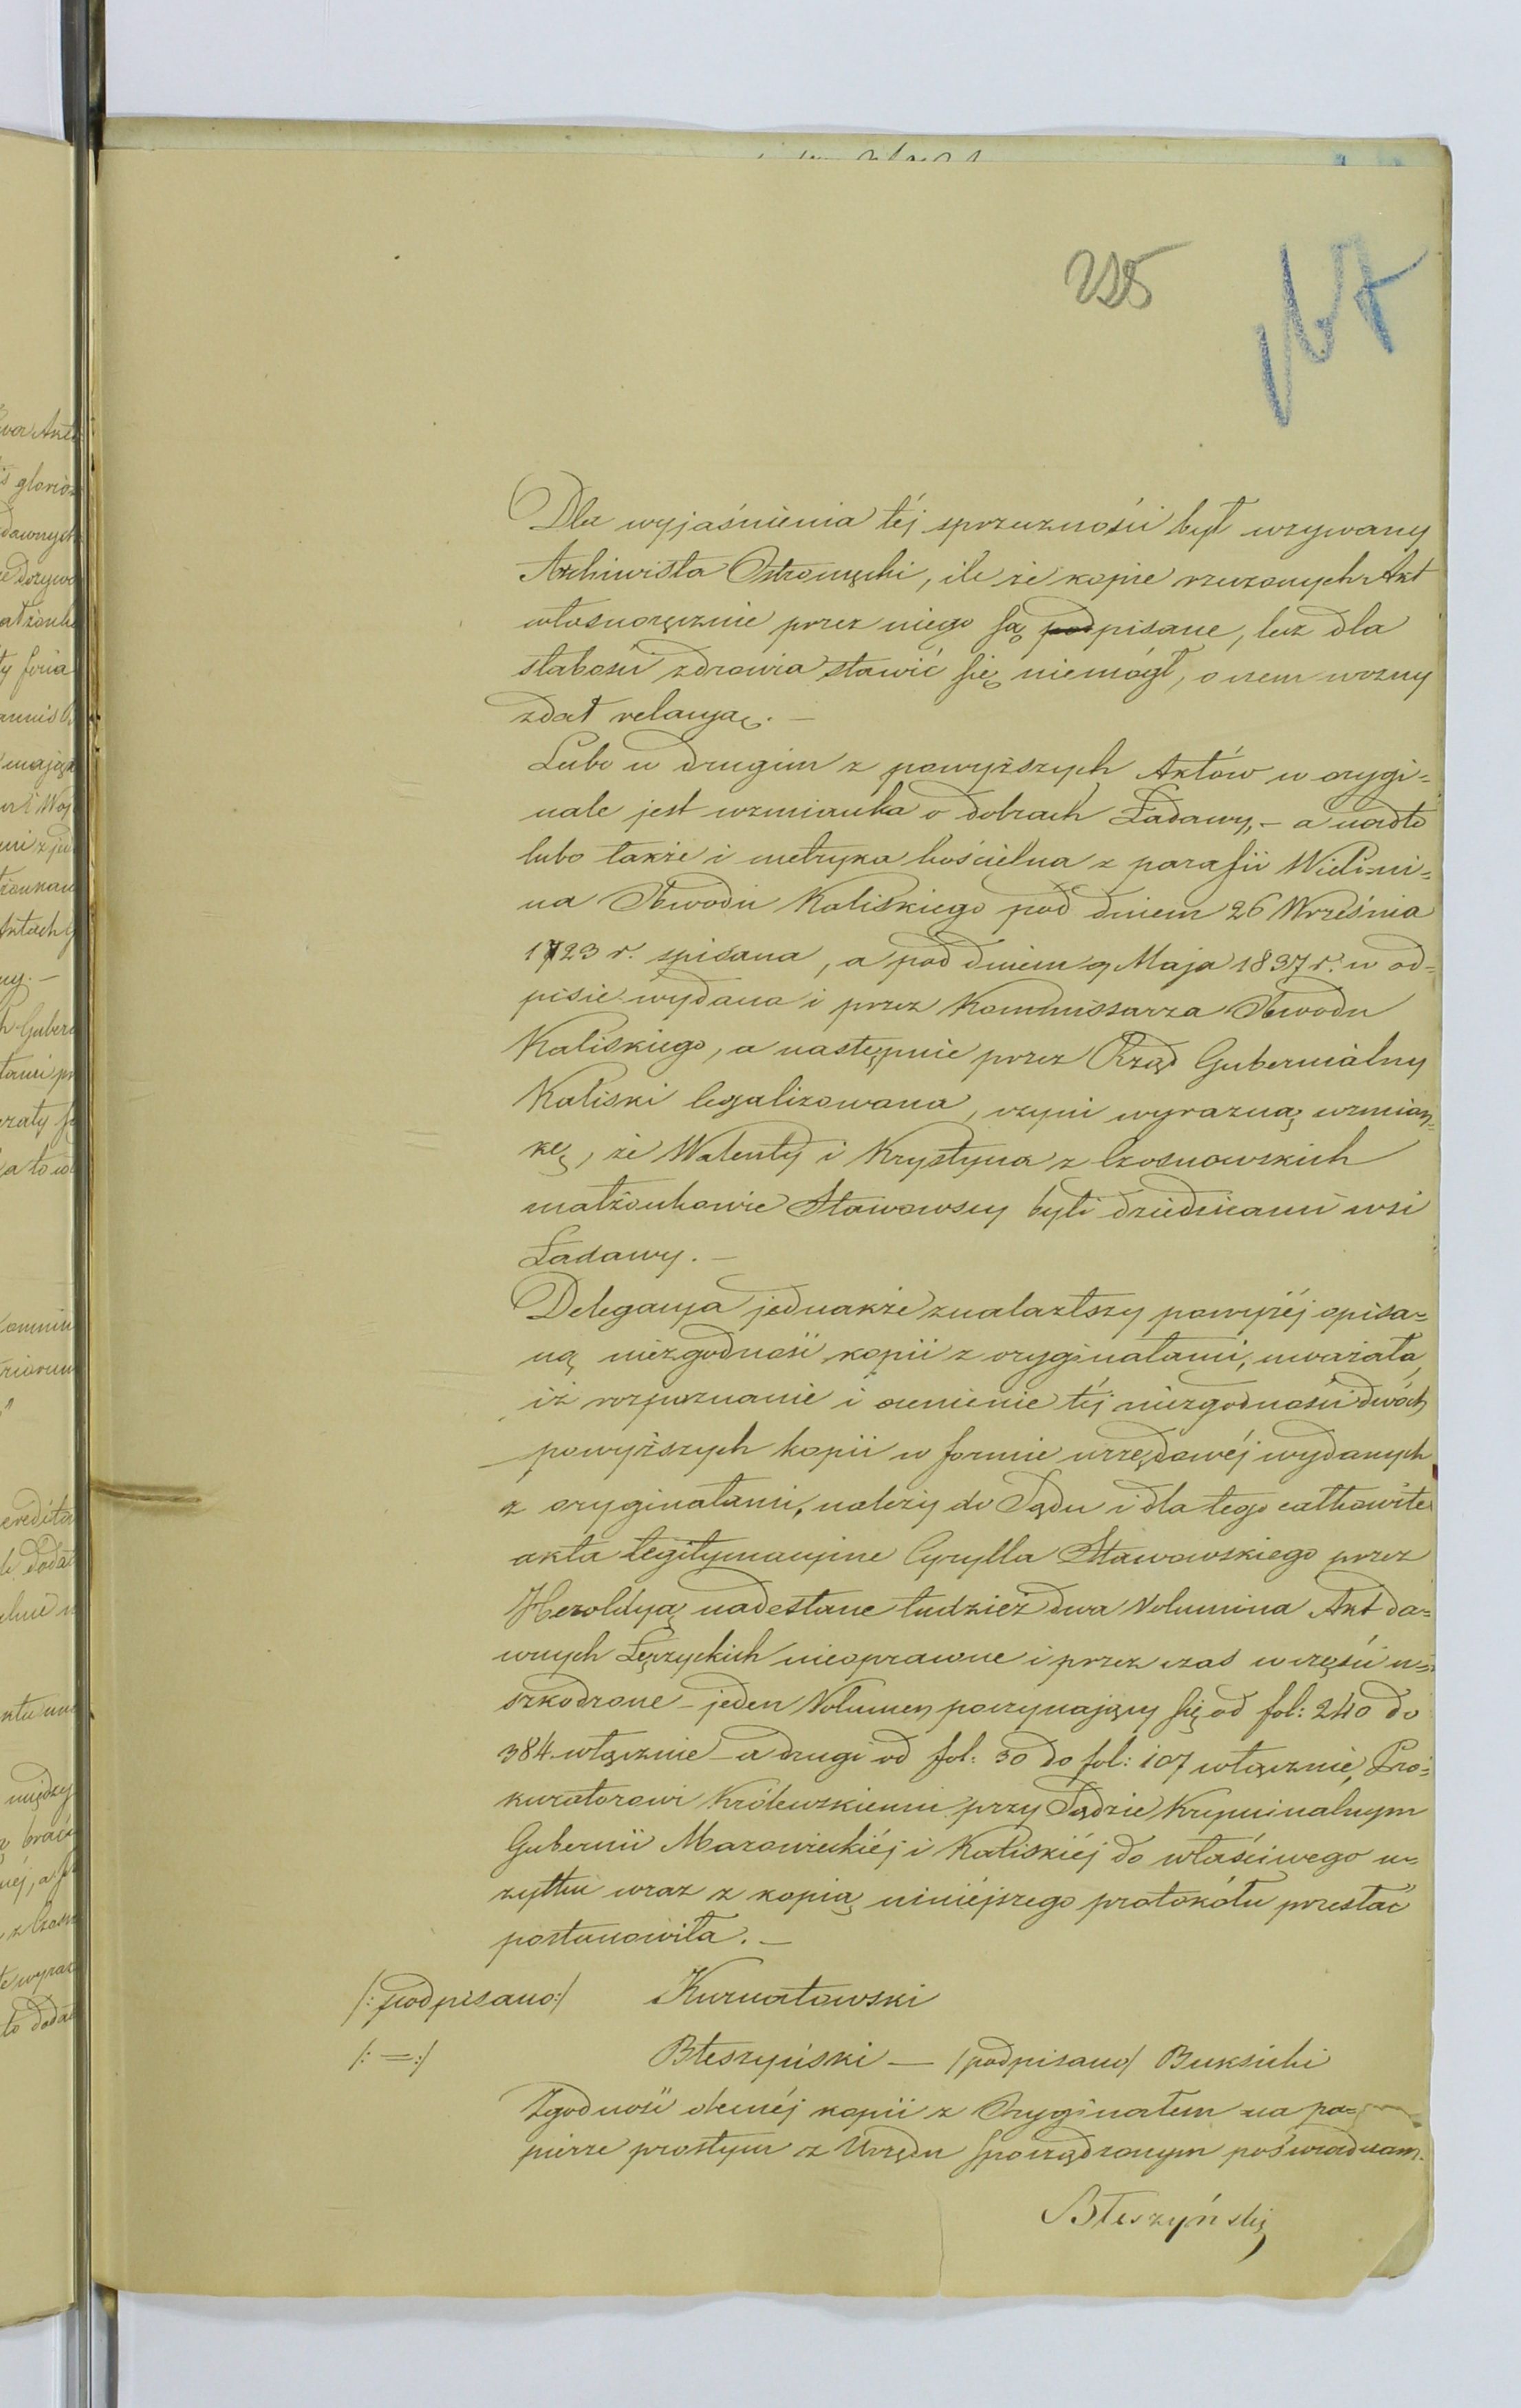 235
Dla wyjaśnienia téj sprzeczności był wzywany
Archiwista Ostromęcki, ile że kopie rzeczonych Akt
własnoręcznie przez niego są podpisane, lecz dla
słabości zdrowia stawić się niemógł, o czem wozny
zdał relacyą. —
Lubo w drugim z powyższych Aktów w orygi=
nale jest wzmianka o dobrach Ładawy, — a nadto
lubo także i metryka kościelna z parafii Wielimi=
na Obwodu Kaliskiego pod dniem 26 Września
1723 r. spisana, a pod dniem 9 Maja 1837 r. w od=
pisie wydana i przez Kommissarza Obwodu
Kaliskiego, a następnie przez Rząd Gubernialny
Kaliski legalizowana, czyni wyrazną wzmian=
kę, że Walenty i Krystyna z Czosnowskich
małżonkowie Stawowscy byli dziedzicami wsi
Ładawy. —
Delegacya jednakże znalazłszy powyżéj opisa=
ną niezgodność kopii z oryginałami, uważała,
iż rozpoznanie i ocenienie téj niezgodności dwóch
powyższych kopii w formie urzędowéj wydanych
z oryginałami, należy do Sądu i dla tego całkowite
akta legitymacyine Cyrylla Stawowskiego przez
Heroldyą nadesłane tudzież dwa Volumina Akt da=
wnych Łęczyckich nieoprawne i przez czas w części u=
szkodzone — jeden Volumen poczynający się od fol: 240 do
384 włącznie — a drugi od fol: 30 do fol: 107 włącznie, Pro=
kuratorowi Królewskiemu przy Sądzie Kryminalnym
Gubernii Mazowieckiéj i Kaliskiéj do właściwego u=
żytku wraz z kopią niniéjszego protokółu przesłać
postanowiła. —
/: podpisano:/ Kurnatowski
/: = :/ Błeszyński — /podpisano/ Buksicki
Zgodność obecnéj kopii z Oryginałem na pa=
pierze prostym z Urzędu sporządzonym poświadczam.
Błeszyński